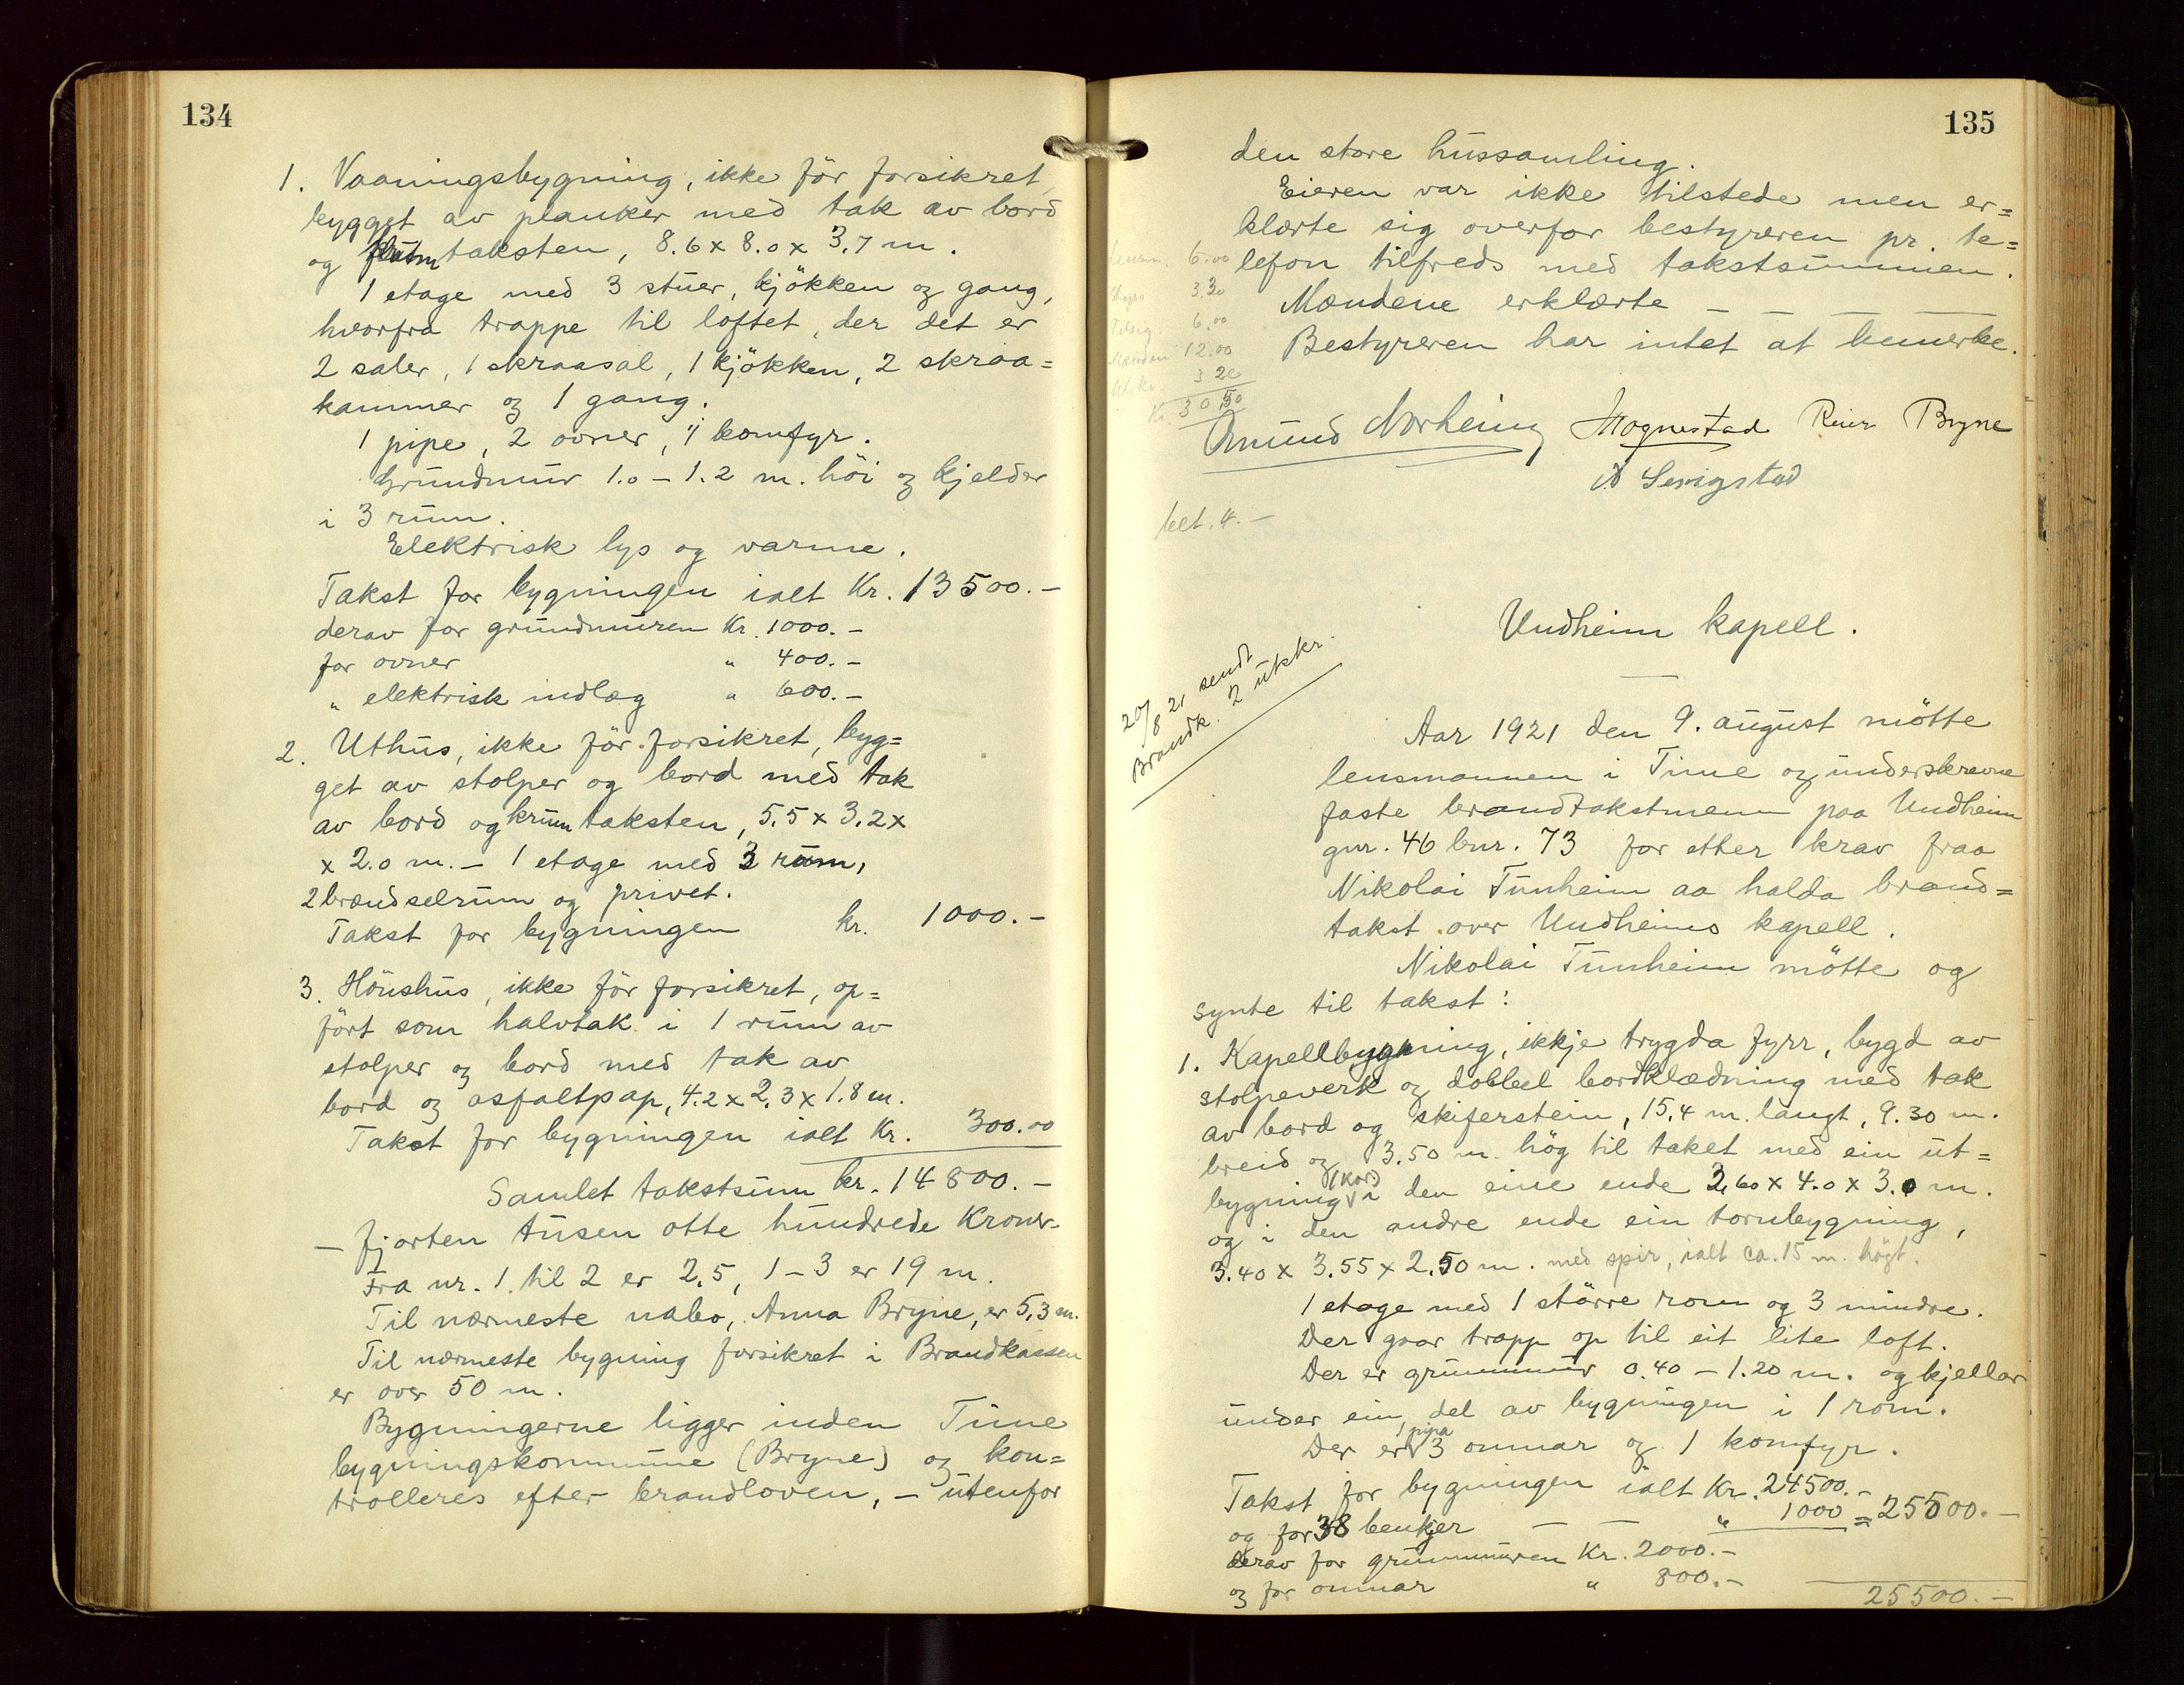 134
1. Vaaningsbygning, ikke før forsikret,
bygget av planker med tak av bord
og taksten, 8.6 x 8.0 x 3.7 m.
1 etage med 3 stuer, kjøkken og gang,
hvorfra trappe til loftet, der det er
2 saler, 1 skraasal, 1 kjøkken, 2 skraa=
kammer og 1 gang.
1 pipe, 2 ovner, 1 komfyr.
Grundmur 1.0 – 1.2 m. høi og kjelder
i 3 rum.
Elektrisk lys og varme.
Takst for bygningen ialt Kr. 13500.–
derav for grundmuren Kr. 1000.–
for ovner " 400.–
" elektrisk indlæg " 600.–
2. Uthus, ikke før forsikret, byg=
get av stolper og bord med tak
av bord og krum taksten, 5.5 x 3.2 x
x 2.0 m. – 1 etage med 3 rum,
2 brændselrum og privet.
Takst for bygningen kr. 1000.–
3. Hønshus, ikke før forsikret, op=
ført som halvtak i 1 rum av
stolper og bord med tak av
bord og asfaltpap, 4.2 x 2.3 x 1.8 m.
Takst for bygningen ialt Kr. 300.00
Samlet takstsum kr. 14800.–
– fjorten tusen otte hundrede Kroner –
Fra nr. 1 til 2 er 2,5, 1 – 3 er 19 m.
Til nærmeste nabo, Anna Bryne, er 5,3 m.
Til nærmeste bygning forsikret i Brandkassen
er over 50 m.
Bygningerne ligger inden Time
bygningskommune (Bryne) og kon=
trolleres efter brandloven, – utenfor
135
den store hussamling.
Eieren var ikke tilstede men er=
klærte sig overfor bestyreren pr. te=
lefon tilfreds med takstsummen.
Mændene erklærte – – – –
Bestyreren har intet at bemerke.
Lensm. 6.00
Skyss 3.30
6.00
Mænden 12.00
3 20
Kr. 30.50
Omund Norheim Mognestad Reier Bryne
Serigstad
bet. 4.–
Undheim kapell.
20/8 21 sendt
Brandk. 2 utskr.
Aar 1921 den 9. august møtte
lensmannen i Time og underskrevne
faste brandtakstmenn paa Undheim
gnr. 46 bnr. 73 for etter krav fraa
Nikolai Tunheim aa halda brand=
takst over Undheims kapell.
Nikolai Tunheim møtte og
synte til takst:
1. Kapellbygning, ikkje trygda fyrr, bygd av
stolpeverk og dobbel bordklædning med tak
av bord og skiferstein, 15,4 m. langt, 9.30 m.
breid og 3.50 m. høg til taket med ein ut=
bygning (Kor) i den eine ende 3,60 x 4.0 x 3.0 m.
og i den andre ende ein tornbygning,
3.40 x 3.55 x 2.50 m. med spir, ialt ca. 15 m. høgt.
1 etage med 1 større rom og 3 mindre.
Der gaar trapp op til eit lite loft.
Der er grunnmur 0.40 – 1.20 m. og kjellar
under ein del av bygningen i 1 rom.
Der er 1 pipa 3 omnar og 1 komfyr.
Takst for bygningen ialt Kr. 24500.–
og for 38 benkjer – – " 1000 = 25500.–
derav for grunnmuren Kr. 2000.–
og for omnar " 800.–
25500.–